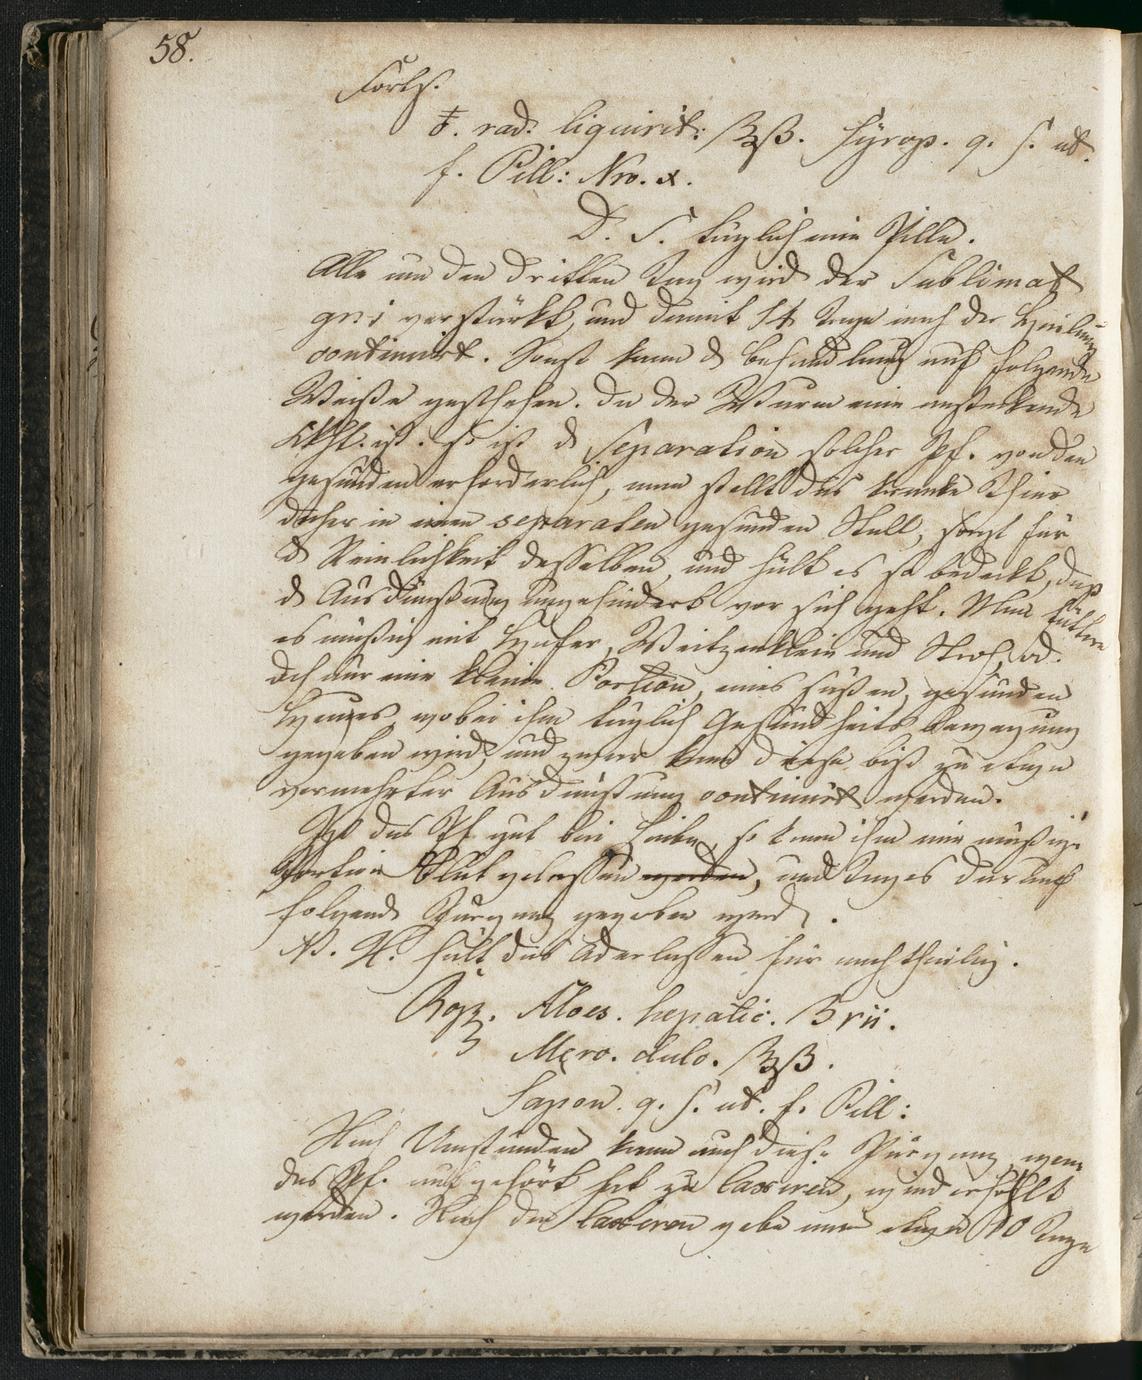 58.
Forts.
rad: liquirit: ℥ß. Syrop. q. s. ut.
f. Pill: Nro. x.
D. S. täglich eine Pille.
Alle um den dritten Tag wird der Sublimat
gr: i verstärkt, und damit 14 Tage nach der Heilung
continuirt. Sonst kann d Behandlung auf folgende
Weiße geschehen. Da der Wurm eine ansteckende
ist. so ist d Separation solcher Pf. von den
gesunden erforderlich, man stellt das kranke Thier
daher in einen separaten gesunden Stall, sorgt für
d Reinlichkeit desselben, und hält es so bedeckt, daß
d Ausdünstung ungehindert vor sich geht. Man füttere
es mäßig mit Hafer, Weitzenklein und Stroh, od.
doch nur eine kleine Portion, eines süßen, gesunden
Heues, wobei ihm täglich Gesundheits bewegung
gegeben wird, und zwar kann diese biß zu etwa
vermehrter Ausdünstung continuirt werden.
Ist das Pf. gut bei Leibe, so kann ihm eine mäßige
Portion Blut gelassen werden, und Tages darauf
folgende Purganz gegeben werd.
N. H. hält das Aderlassen für nachtheilig.
Rpz. Aloes. hepatic. vii.
Merc. dulc. ℥ß.
Sapon. q. s. ut. f. Pill:
Nach Umständen kann auch diese Purganz, wenn
das Pf. aufgehört hat zu laxiren, wiederhohlt
werden. Nach den Laxiren gebe man etwa 10 Tage